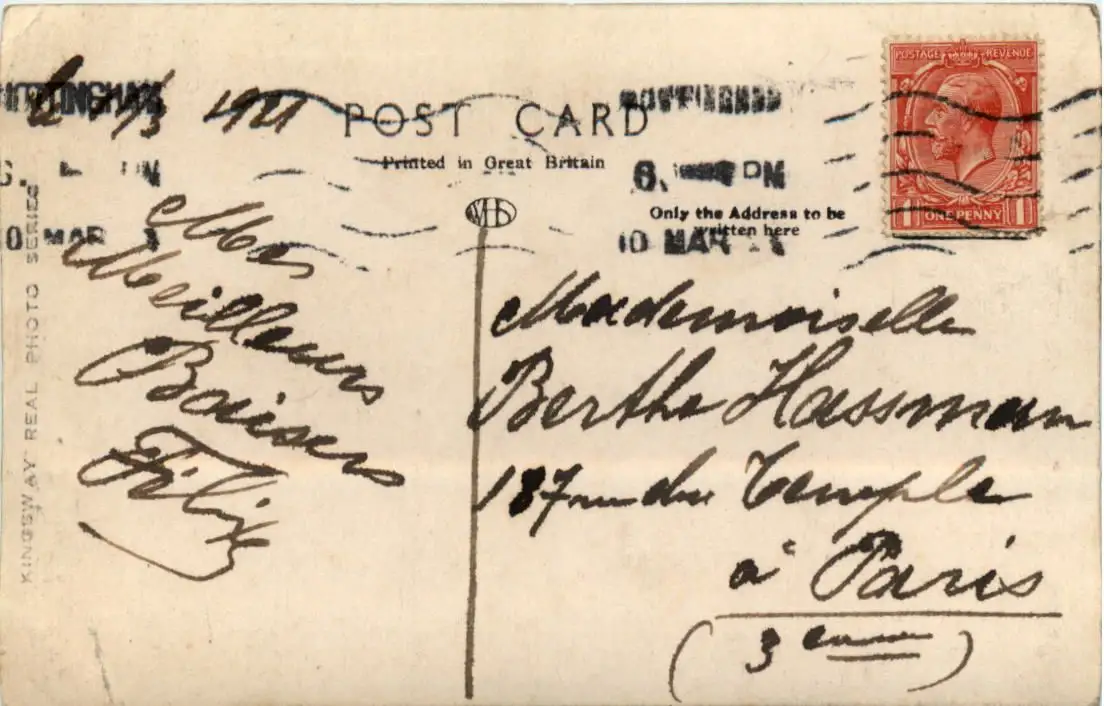 POST CARD
Printed in Great Britain
1921
NOTTINGHAM
6. PM
10 MAR
POSTAGE REVENUE
1 ONE PENNY 1
Only the Address to be
written here
KINGSWAY REAL PHOTO SERIES
Mes
Meilleurs
Baisers
Mademoiselle
Berthe Hassman
187 rue du Temple
à Paris
(3eme)